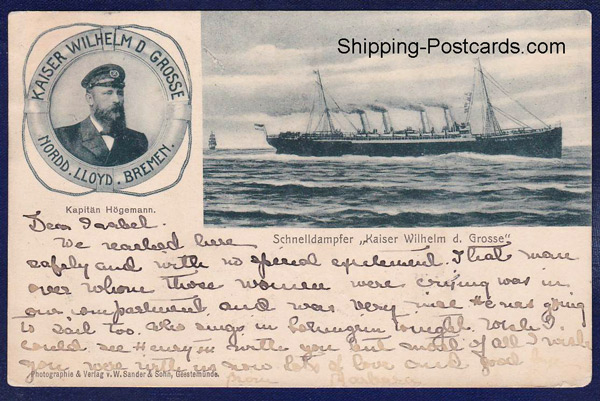 Shipping-Postcards.com
KAISER WILHELM D. GROSSE
NORDD. LLOYD. BREMEN.
Kapitän Högemann.
Schnelldampfer „Kaiser Wilhelm d. Grosse"
Dear Isabel.
We reached here
safely and with no special excitement. That man
over whom those women were crying was in
our compartment and was very nice He was going
to sail too. She sings in tonight. Wish I
could see Henry in with you but most of all I wish
you were with us now lots of love and good
from Barbara
Photographie & Verlag v. W. Sander & Sohn, Geestemünde.